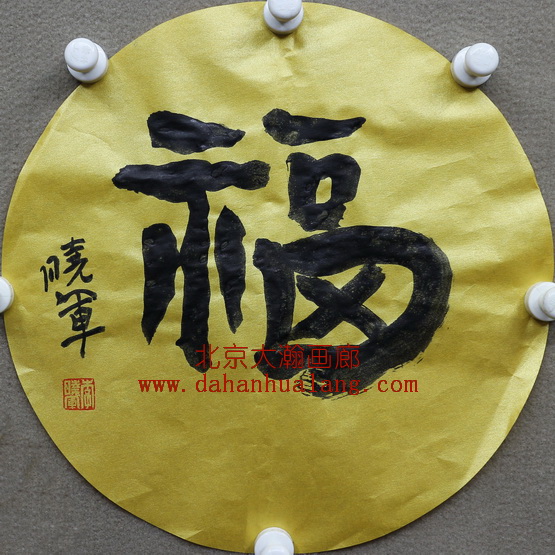 福
曉軍
北京大瀚画廊
www.dahanhualang.com